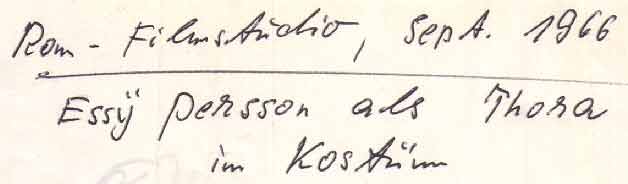 Rom - Filmstudio, Sept. 1966
Essÿ Persson als Thora
im Kostüm